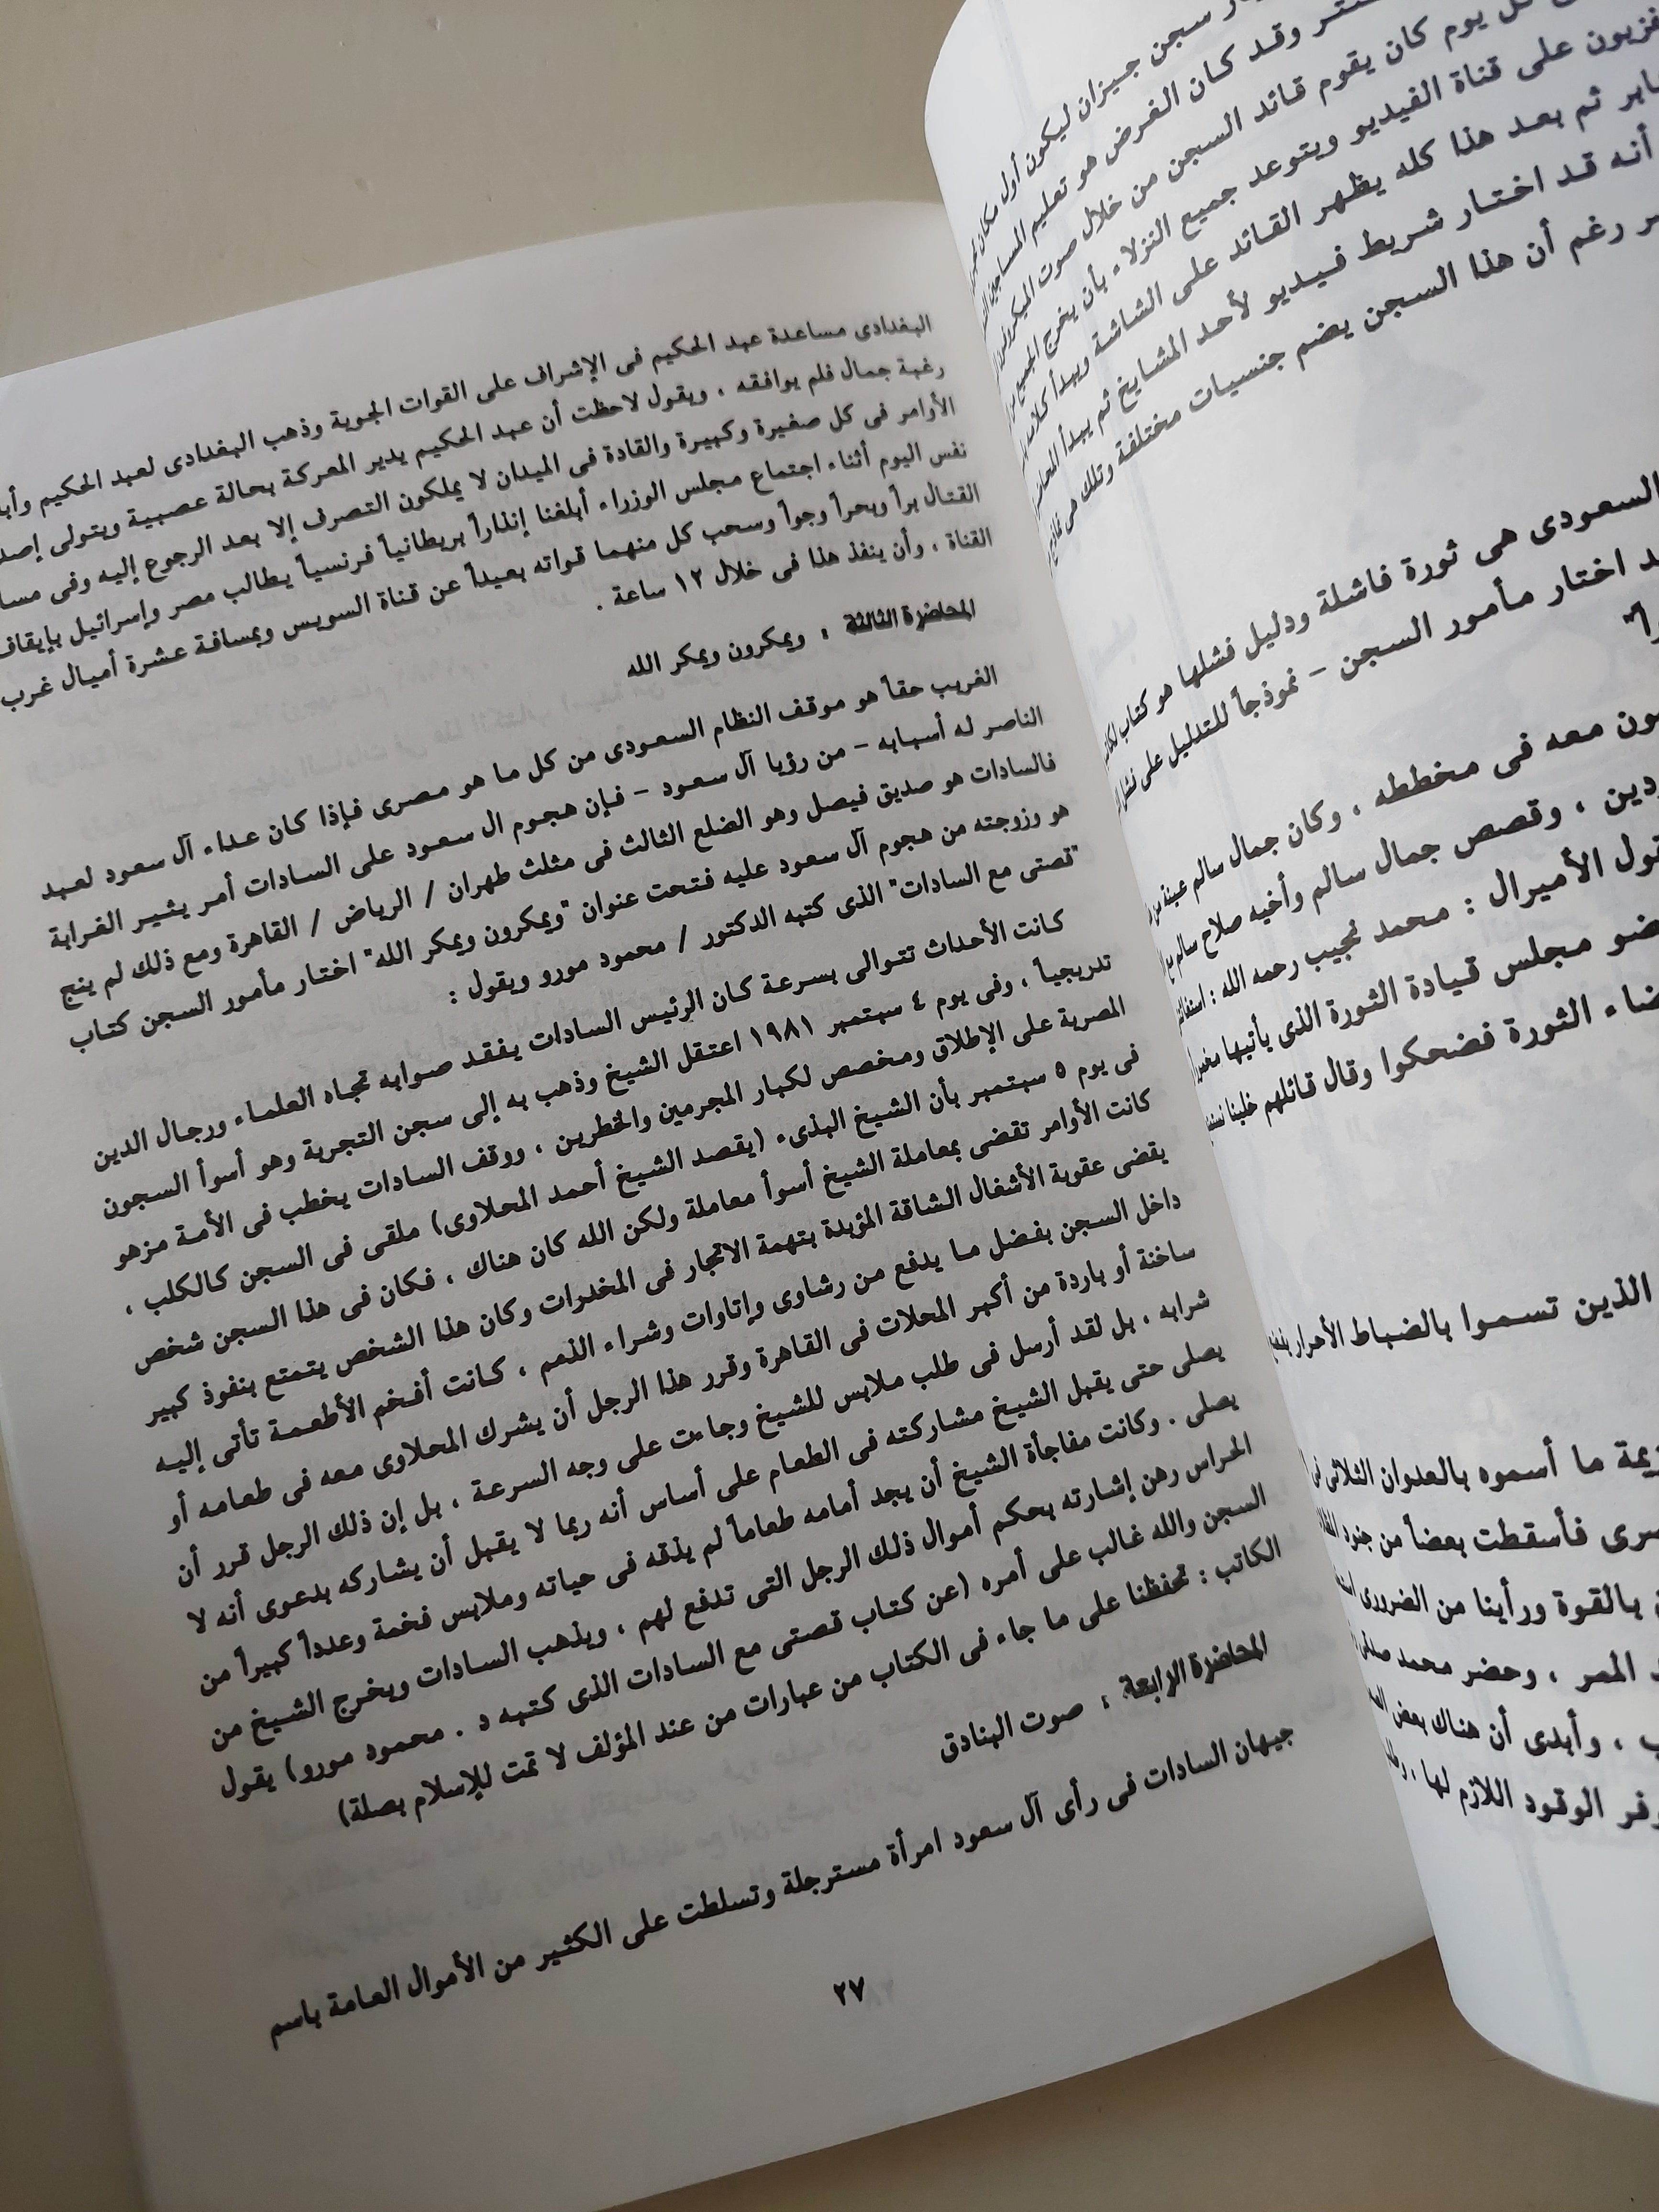 ـار سجن جيزان ليكون أول مكان
ـتـر وقد كان الغرض هو تعليم المساجين
كل يوم كان يقوم قائد السجن من خلال صوت الميكروفون
ـفزيون على قناة الفيديو ويتوعد جميع النزلاء بأن يخرج الجميع
ـابر ثم بعد هذا كله يظهر القائد على الشاشة ويبدأ كلامه
أنه قد اختار شريط فيديو لأحد المشايخ ثم يبدأ
ـر رغم أن هذا السجن يضم جنسيات مختلفة وتلك هى
السعودى هى ثورة فاشلة ودليل فشلها هو كتاب
ـد اختار مأمور السجن – نموذجاً للتدليل على
را"
ـون معه فى مخططه ، وكان جمال سالم عينة من
ـردين ، وقصص جمال سالم وأخيه صلاح سالم مع
ـقول الأميرال : محمد نجيب رحمه الله :
ـضو مجلس قيادة الثورة الذى يأتيها
ـضاء الثورة فضحكوا وقال قائلهم خلينا
الذين تسموا بالضباط الأحرار
ـزيمة ما أسموه بالعدوان الثلاثى
ـصرى فأسقطت بعضاً من جنود
ـن بالقوة ورأينا من الضرورى
ـد الممر ، وحضر محمد صدقى
ـب ، وأبدى أن هناك بعض
ـوفر الوقود اللازم لها ،
البغدادى مساعدة عبد الحكيم فى الإشراف على القوات الجوية وذهب البغدادى لعبد الحكيم
رغبة جمال فلم يوافقه ، ويقول لاحظت أن عبد الحكيم يدير المعركة بحالة عصبية ويتولى
الأوامر فى كل صغيرة وكبيرة والقادة فى الميدان لا يملكون التصرف إلا بعد الرجوع إليه وفى
نفس اليوم أثناء اجتماع مجلس الوزراء أبلغنا إنذاراً بريطانياً فرنسياً يطالب مصر وإسرائيل بإيقاف
القتال براً وبحراً وجواً وسحب كل منهما قواته بعيداً عن قناة السويس وبمسافة عشرة أميال غرب
القناة ، وأن ينفذ هذا فى خلال ١٢ ساعة .
المحاضرة الثالثة : ويمكرون ويمكر الله
الغريب حقاً هو موقف النظام السعودى من كل ما هو مصرى فإذا كان عداء آل سعود لعبد
الناصر له أسبابه – من رؤيا آل سعود – فإن هجوم ال سعود على السادات أمر يثير الغرابة
فالسادات هو صديق فيصل وهو الضلع الثالث فى مثلث طهران / الرياض / القاهرة ومع ذلك لم ينج
هو وزوجته من هجوم آل سعود عليه فتحت عنوان "ويمكرون ويمكر الله" اختار مأمور السجن كتاب
"قصتى مع السادات" الذى كتبه الدكتور / محمود مورو ويقول :
كانت الأحداث تتوالى بسرعة كان الرئيس السادات يفقد صوابه تجاه العلماء ورجال الدين
تدريجياً ، وفى يوم ٤ سبتمبر ١٩٨١ اعتقل الشيخ وذهب به إلى سجن التجربة وهو أسوأ السجون
المصرية على الإطلاق ومخصص لكبار المجرمين والخطرين ، ووقف السادات يخطب فى الأمة مزهو
فى يوم ٥ سبتمبر بأن الشيخ البذىء (يقصد الشيخ أحمد المحلاوى) ملقى فى السجن كالكلب ،
كانت الأوامر تقضى بمعاملة الشيخ أسوأ معاملة ولكن الله كان هناك ، فكان فى هذا السجن شخص
يقضى عقوبة الأشغال الشاقة المؤبدة بتهمة الاتجار فى المخدرات وكان هذا الشخص يتمتع بنفوذ كبير
داخل السجن بفضل ما يدفع من رشاوى وإتاوات وشراء الذمم ، كانت أفخم الأطعمة تأتى إليه
ساخنة أو باردة من أكبر المحلات فى القاهرة وقرر هذا الرجل أن يشرك المحلاوى معه فى طعامه أو
شرابه ، بل لقد أرسل فى طلب ملابس للشيخ وجاءت على وجه السرعة ، بل إن ذلك الرجل قرر أن
يصلى حتى يقبل الشيخ مشاركته فى الطعام على أساس أنه ربما لا يقبل أن يشاركه بدعوى أنه لا
يصلى . وكانت مفاجأة الشيخ أن يجد أمامه طعاماً لم يذقه فى حياته وملابس فخمة وعدداً كبيراً من
الحراس رهن إشارته بحكم أموال ذلك الرجل التى تدفع لهم ، ويذهب السادات ويخرج الشيخ من
السجن والله غالب على أمره (عن كتاب قصتى مع السادات الذى كتبه د . محمود مورو) يقول
الكاتب : تحفظنا على ما جاء فى الكتاب من عبارات من عند المؤلف لا تمت للإسلام بصلة)
المحاضرة الرابعة : صوت البنادق
جيهان السادات فى رأى آل سعود امرأة مسترجلة وتسلطت على الكثير من الأموال العامة باسم
٢٧